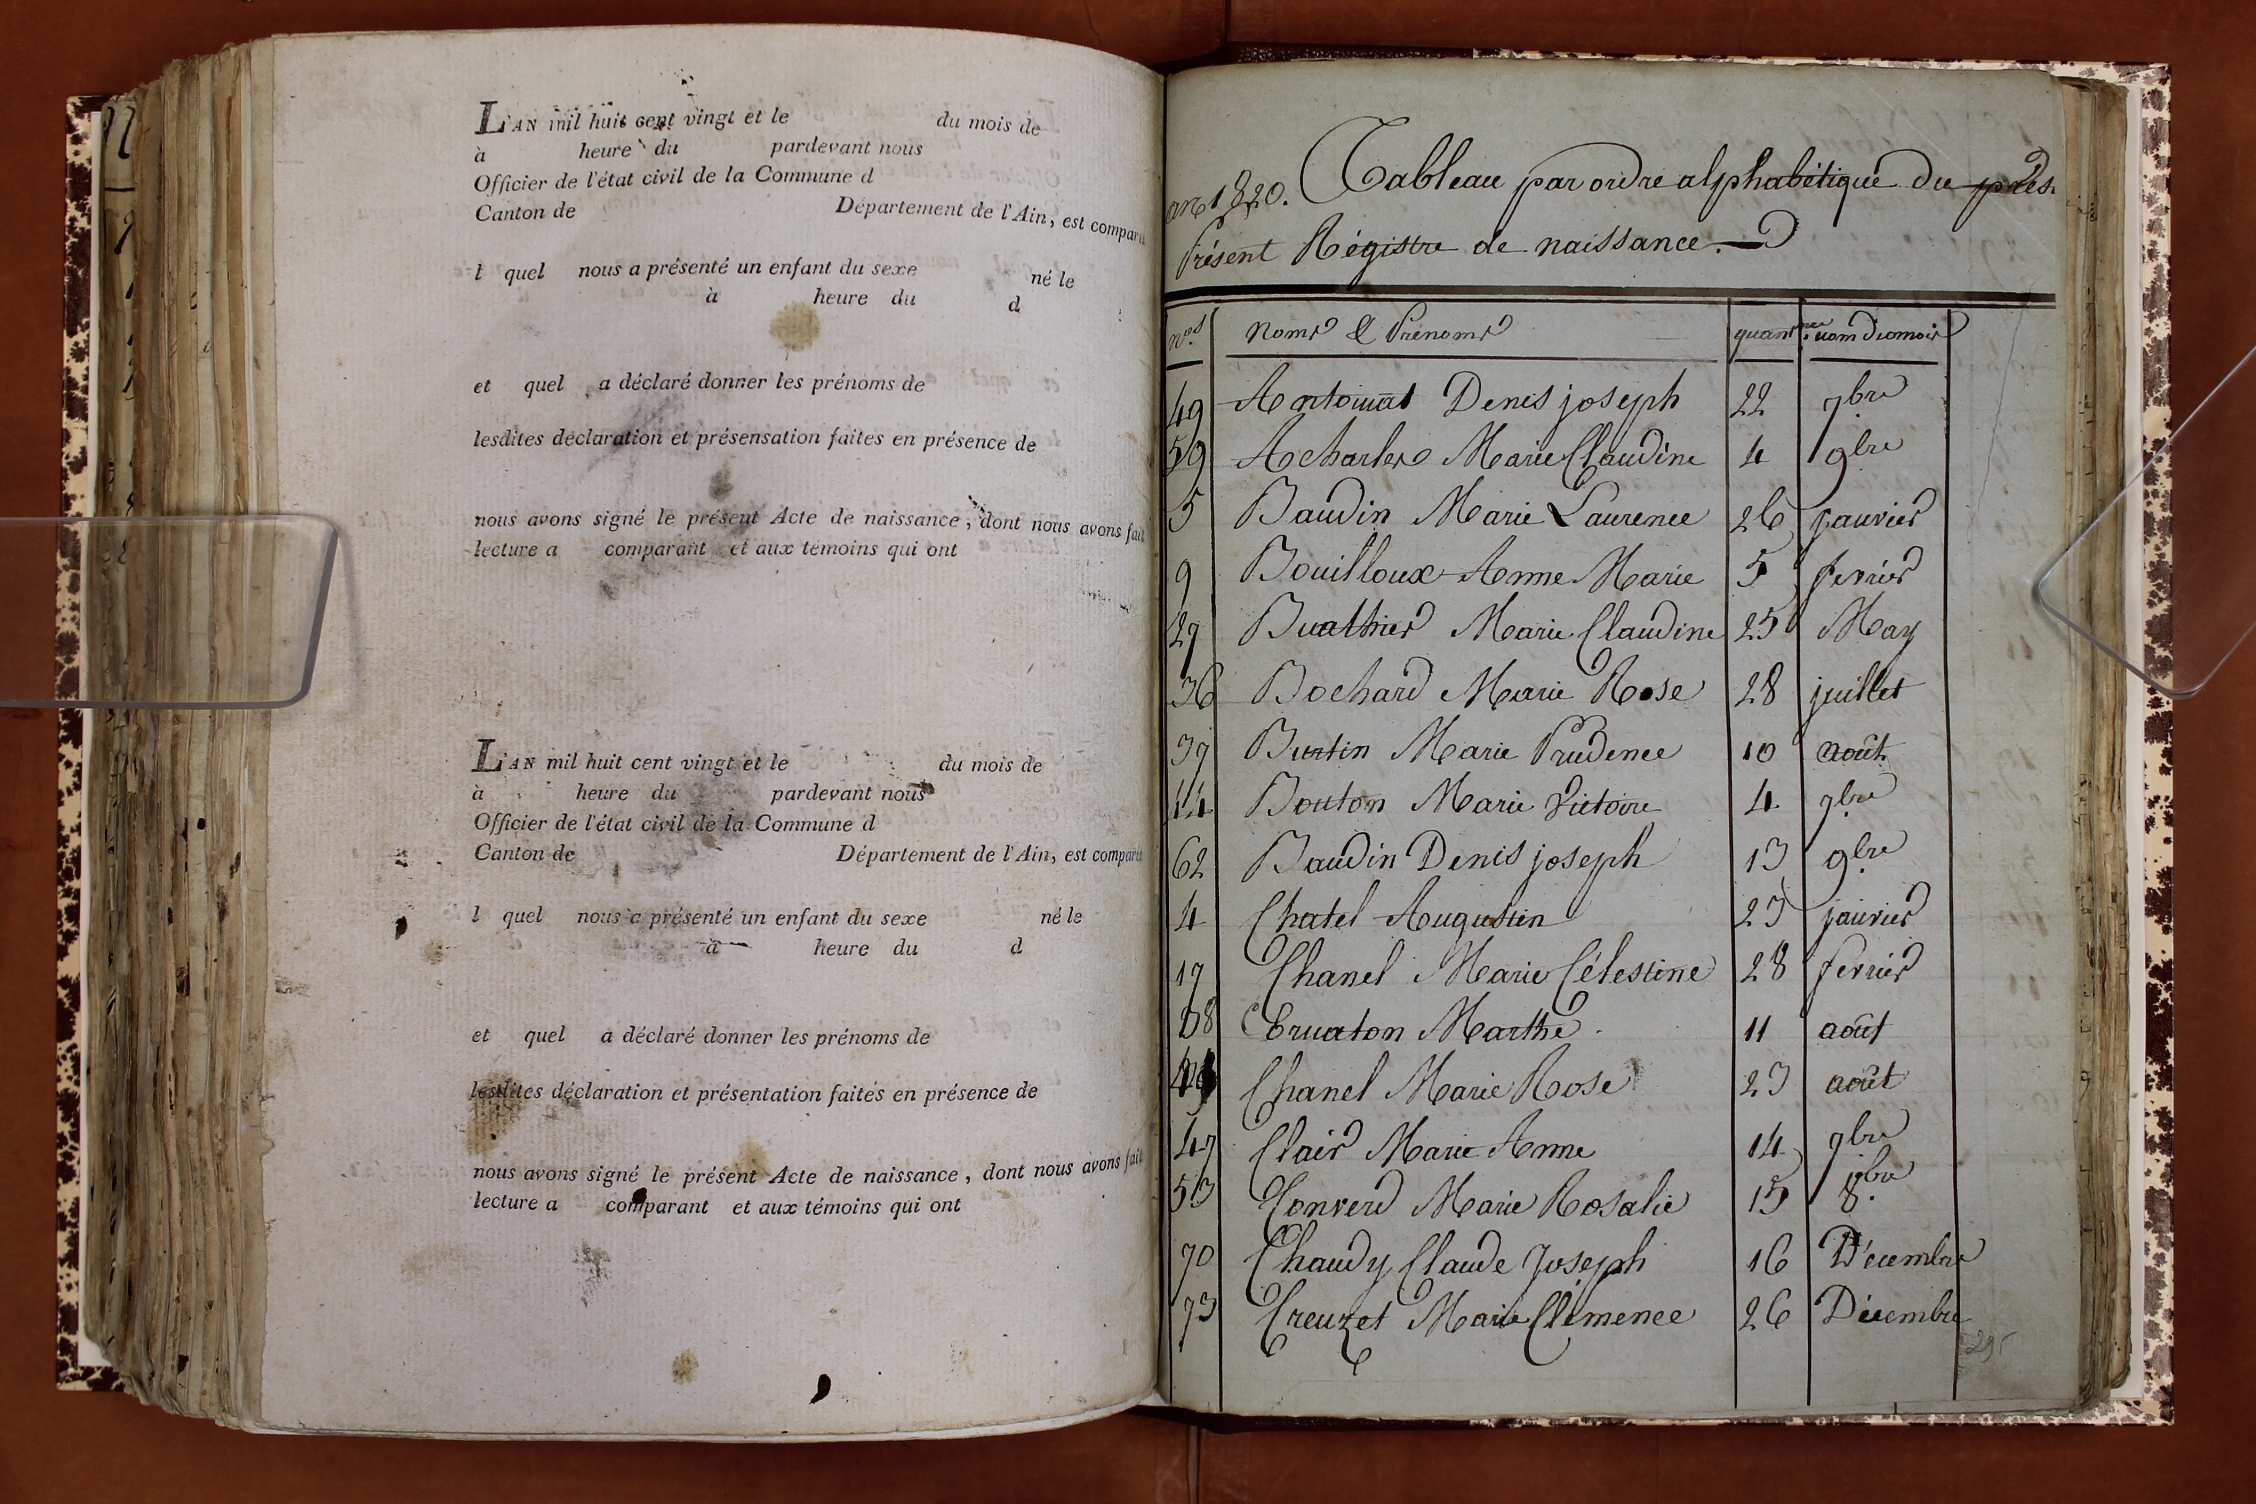 L'AN mil huit cent vingt et le du mois de
à heure du pardevant nous
Officier de l'état civil de la Commune d
Canton de Département de l'Ain, est comparu
l quel nous a présenté un enfant du sexe né le
à heure du d
et quel a déclaré donner les prénoms de
lesdites déclaration et présensation faites en présence de
nous avons signé le présent Acte de naissance, dont nous avons fait
lecture a comparant et aux témoins qui ont
L'AN mil huit cent vingt et le du mois de
à heure du pardevant nous
Officier de l'état civil de la Commune d
Canton de Département de l'Ain, est comparu
l quel nous a présenté un enfant du sexe né le
à heure du d
et quel a déclaré donner les prénoms de
lesdites déclaration et présentation faites en présence de
nous avons signé le présent Acte de naissance, dont nous avons fait
lecture a comparant et aux témoins qui ont
an 1820. Tableau par ordre alphabétique du prés.
Présent Régistre de naissance.
nos Noms & Prénoms quant nom du mois
49 Antoinat Denis joseph 22 7bre
59 Acharles Marie Claudine 4 9bre
5 Baudin Marie Laurence 26 janvier
9 Bouilloux Anne Marie 5 fevrier
27 Buathier Marie Claudine 25 May
36 Bochard Marie Rose 28 juillet
37 Burtin Marie Prudence 10 août
44 Bouton Marie Victoire 4 7bre
62 Baudin Denis joseph 13 9bre
4 Chatel Augustin 23 janvier
17 Chanel Marie Célestine 28 fevrier
38 Cruaton Marthe 11 août
Chanel Marie Rose 23 août
47 Clair Marie Anne 14 7bre
53 Converd Marie Rosalie 15 8bre
70 Chaudy Claude Joseph 16 Décembre
73 Creuzet Marie Clémence 26 Décembre